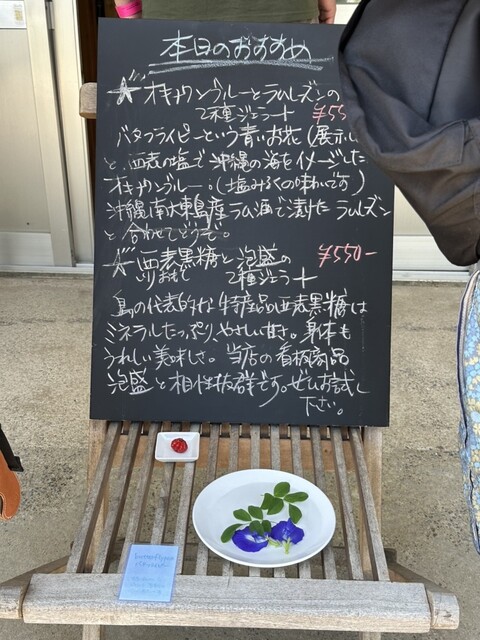 本日のおすすめ
☆ オキナワンブルーとラムレーズンの
2種ジェラート ¥55
バタフライピーという青いお花(展示し
と、西表の塩で沖縄の海をイメージした
オキナワンブルー。(塩みるくの味わいです)
沖縄南大東島産ラム酒で漬けたラムレーズン
と合わせてどうぞ。
☆ 西表黒糖と泡盛の ¥550-
いりおもて 2種ジェラート
島の代表的な特産品の西表黒糖は
ミネラルたっぷり、やさしい甘さ。身体も
うれしい美味しさ。当店の看板商品
泡盛と相性抜群です。ぜひお試し
下さい。